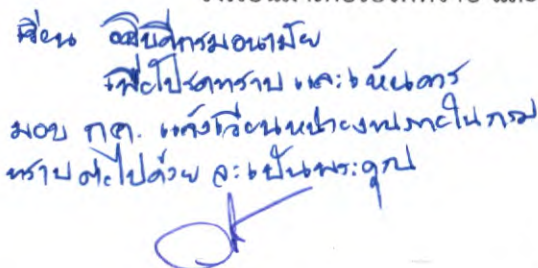 เรียน อธิบดีกรมอนามัย
เพื่อโปรดทราบ และเห็นควร
มอบ กค. แจ้งเวียนหน่วยงานภายในกรม
ทราบต่อไปด้วย จะเป็นพระคุณ